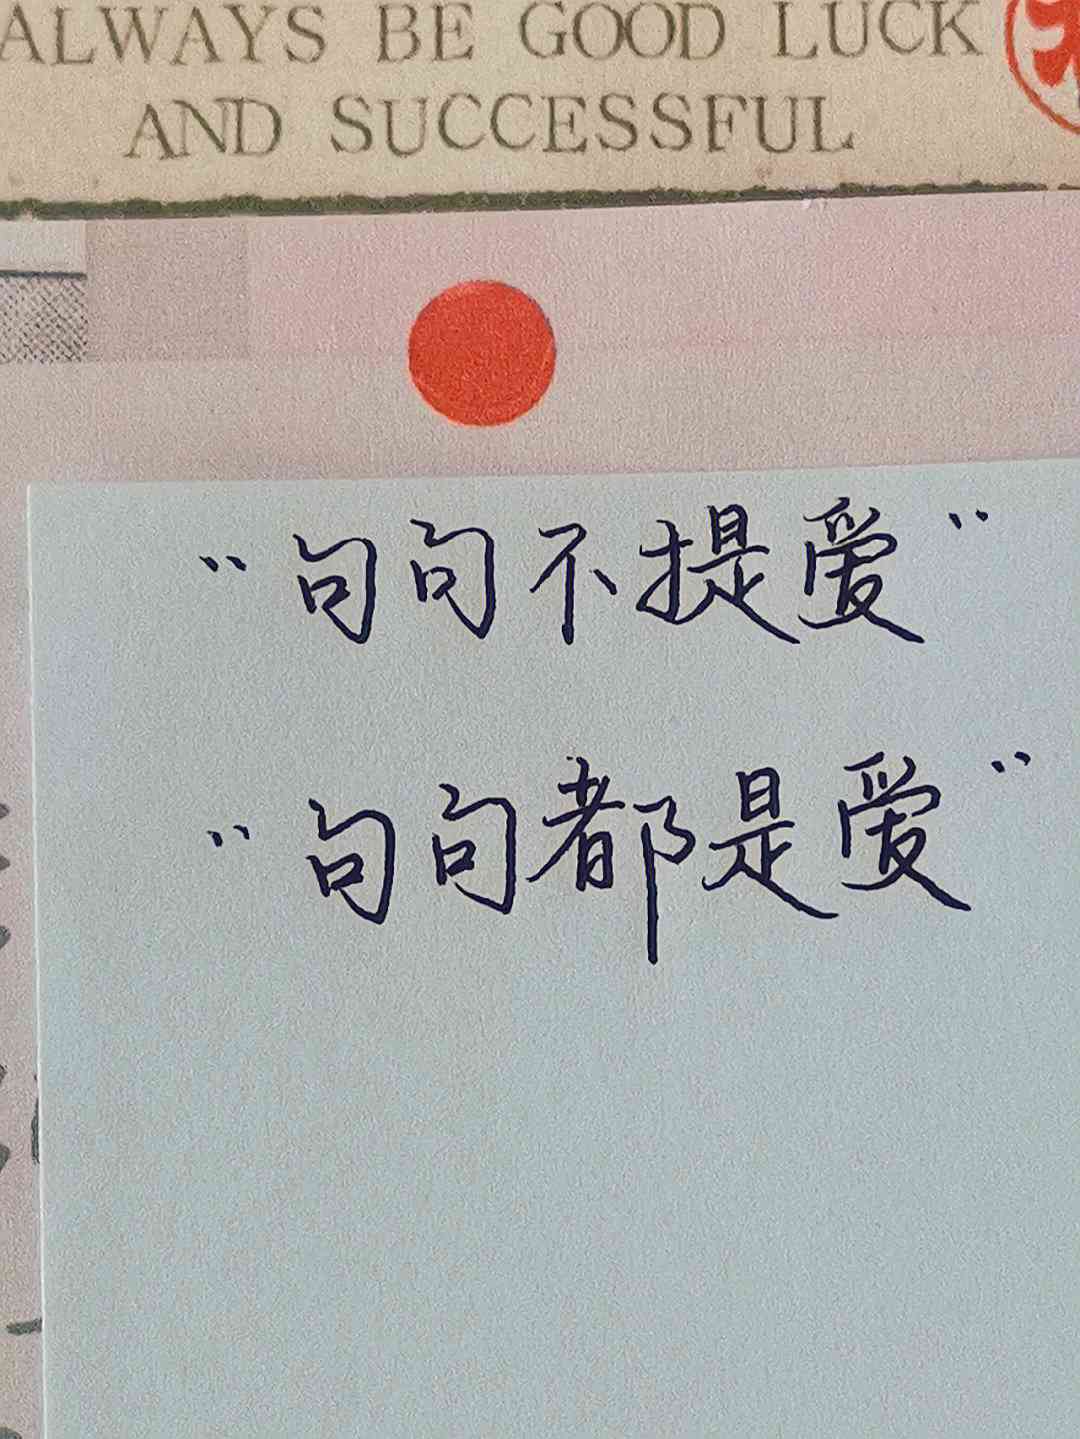 ALWAYS BE GOOD LUCK
AND SUCCESSFUL
“句句不提爱”
“句句都是爱”